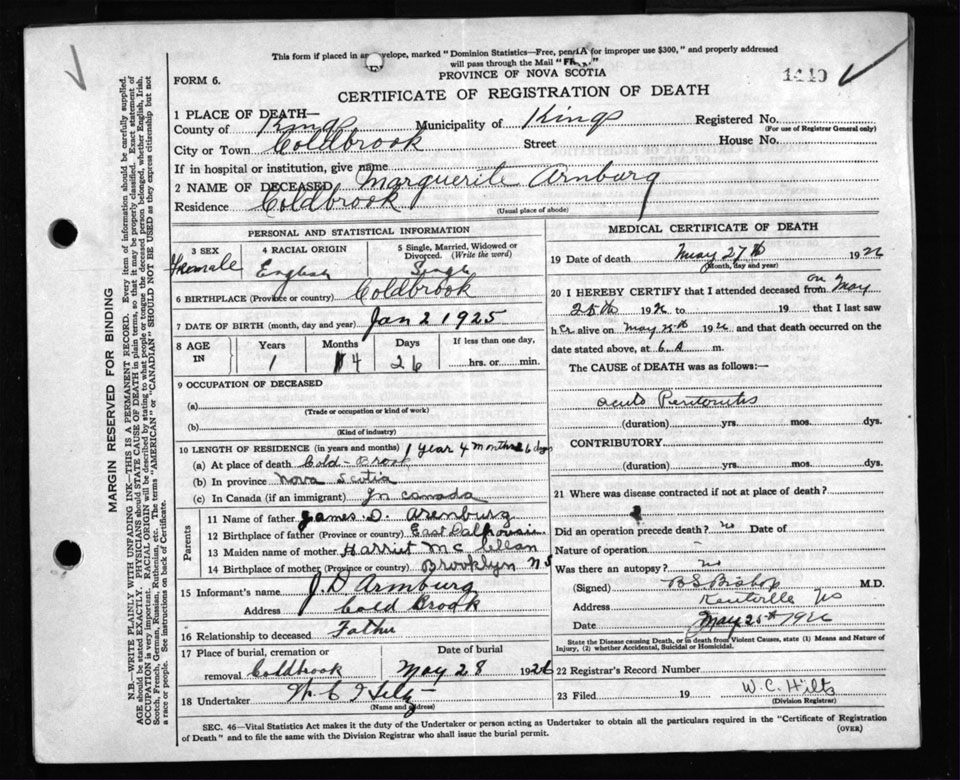 This form if placed in an envelope, marked "Dominion Statistics—Free, penalty for improper use $300," and properly addressed
will pass through the Mail "Free."
PROVINCE OF NOVA SCOTIA
FORM 6.
1440
CERTIFICATE OF REGISTRATION OF DEATH
1 PLACE OF DEATH—
County of Kings Municipality of Kings Registered No.
(For use of Registrar General only)
City or Town Coldbrook Street House No.
If in hospital or institution, give name
2 NAME OF DECEASED Marguerite Arnburg
Residence Coldbrook
(Usual place of abode)
PERSONAL AND STATISTICAL INFORMATION
3 SEX 4 RACIAL ORIGIN 5 Single, Married, Widowed or
Divorced. (Write the word)
Female English Single
6 BIRTHPLACE (Province or country) Coldbrook
7 DATE OF BIRTH (month, day and year) Jan 2 1925
8 AGE IN Years Months Days If less than one day,
1 4 26 hrs. or min.
9 OCCUPATION OF DECEASED
(a)
(Trade or occupation or kind of work)
(b)
(Kind of industry)
10 LENGTH OF RESIDENCE (in years and months) 1 year 4 months 26 days
(a) At place of death Cold-Brook
(b) In province Nova Scotia
(c) In Canada (if an immigrant) In Canada
Parents
11 Name of father James D. Arenburg
12 Birthplace of father (Province or country) East Dalhousie
13 Maiden name of mother Harriet McClean
14 Birthplace of mother (Province or country) Brooklyn N S
15 Informant's name J. D Armburg
Address Cold Brook
16 Relationship to deceased Father
17 Place of burial, cremation or Date of burial
removal Coldbrook May 28 1926
18 Undertaker W. C Hiltz
(Name and address)
MEDICAL CERTIFICATE OF DEATH
19 Date of death May 27th 1926
(Month, day and year)
20 I HEREBY CERTIFY that I attended deceased from on May
25th 1926 to 19 that I last saw
h er alive on May 25th 1926 and that death occurred on the
date stated above, at 6 A m.
The CAUSE of DEATH was as follows:—
acute Peritonitis
(duration) yrs. mos. dys.
CONTRIBUTORY
(duration) yrs. mos. dys.
21 Where was disease contracted if not at place of death?
Did an operation precede death? no Date of
Nature of operation
Was there an autopsy? no
(Signed) B S Bishop M.D.
Address Kentville NS
Date May 28th 1926
State the Disease causing Death, or in death from Violent Causes, state (1) Means and Nature of
Injury, (2) whether Accidental, Suicidal or Homicidal.
22 Registrar's Record Number
23 Filed 19 W. C. Hilts
(Division Registrar)
SEC. 46—Vital Statistics Act makes it the duty of the Undertaker or person acting as Undertaker to obtain all the particulars required in the "Certificate of Registration
of Death" and to file the same with the Division Registrar who shall issue the burial permit.
(OVER)
MARGIN RESERVED FOR BINDING
N.B.—WRITE PLAINLY WITH UNFADING INK—THIS IS A PERMANENT RECORD. Every item of information should be carefully supplied.
AGE should be stated EXACTLY. PHYSICIANS should STATE CAUSE OF DEATH in plain terms, so that it may be properly classified. Exact statement of
OCCUPATION is very important. RACIAL ORIGIN will be described by stating to what people or tongue the deceased person belonged, whether English, Irish,
Scotch, French, German, Russian, Ruthenian, etc. The terms "AMERICAN" or "CANADIAN" SHOULD NOT BE USED as they express citizenship but not
a race or people. See instructions on back of Certificate.